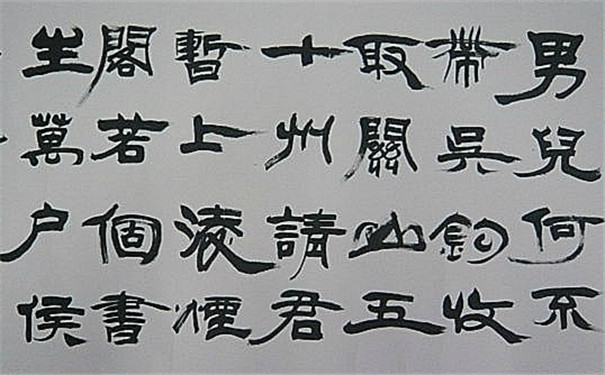 男兒何不
帶吳鉤收
取關山五
十州請君
暫上淩煙
閣若個書
生萬户侯